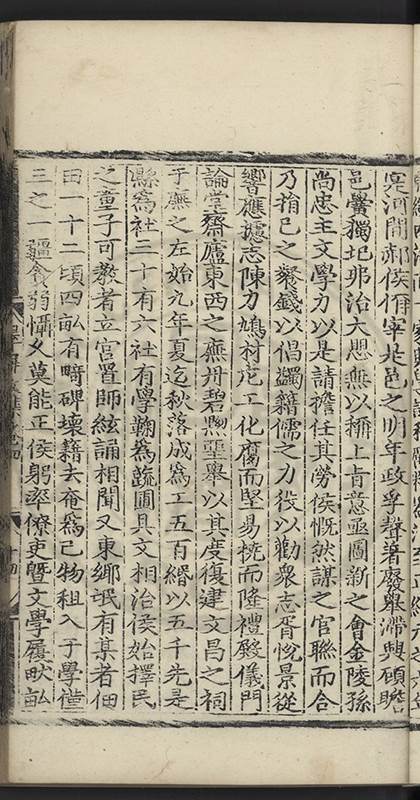 寔河間郝侯侢宰是邑之明年政孚聲著廢舉滯興頋瞻
邑黌獨圮弗治大懼無以稱上肯意亟圖新之會金陵孫
尚忠主文學力以是請擔任其勞侯慨然謀之官聯而合
乃捐已之餐錢以倡蠲籍儒之力役以勸衆志胥悅景從
響應攄志陳力鳩材庀工化腐而堅易撓而隆禮殿儀門
論堂齋廬東西之廡丹碧黝堊舉以其度復建文昌之祠
于廡之左始九年夏迄秋落成爲工五百緡以五千先是
縣爲社二十有六社有學鞠爲蔬圃具文相治侯始擇民
之童子可敎者立官置師絃誦相聞又東鄉氓有某者佃
田一十二頃四畝有畸碑壞籍去奄爲己物租入于學僅
三之一彊貪弱懾久莫能正侯躬率僚吏曁文學履畎畝